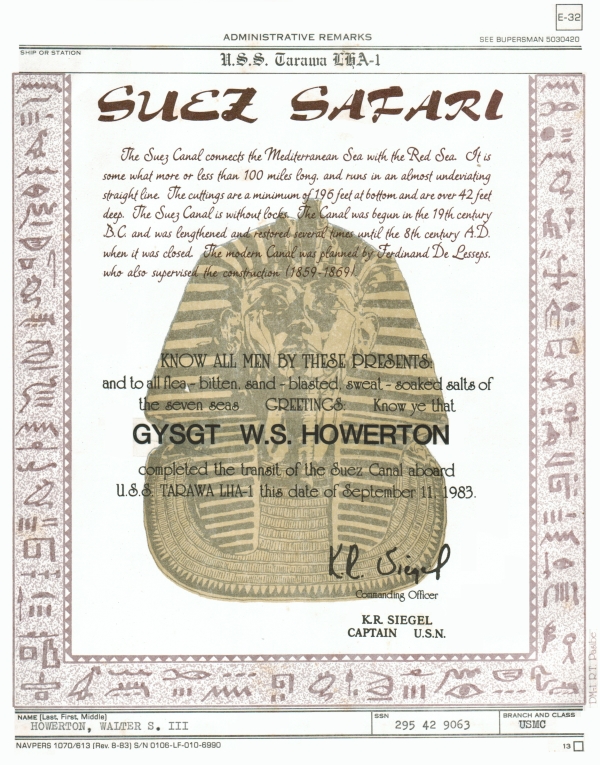 E-32
ADMINISTRATIVE REMARKS
SEE BUPERSMAN 5030420
SHIP OR STATION
U.S.S. Tarawa LHA-1
SUEZ SAFARI
The Suez Canal connects the Mediterranean Sea with the Red Sea. It is
some what more or less than 100 miles long, and runs in an almost undeviating
straight line. The cuttings are a minimum of 196 feet at bottom and are over 42 feet
deep. The Suez Canal is without locks. The Canal was begun in the 19th century
B.C. and was lengthened and restored several times until the 8th century A.D.
when it was closed. The modern Canal was planned by Ferdinand De Lesseps,
who also supervised the construction (1859-1869)
KNOW ALL MEN BY THESE PRESENTS:
and to all flea - bitten, sand - blasted, sweat - soaked salts of
the seven seas GREETINGS: Know ye that
GYSGT W.S. HOWERTON
completed the transit of the Suez Canal aboard
U.S.S. TARAWA LHA-1 this date of September 11, 1983.
K.R. Siegel
Commanding Officer
K.R. SIEGEL
CAPTAIN U.S.N.
NAME (Last, First, Middle)
HOWERTON, WALTER S. III
SSN
295 42 9063
BRANCH AND CLASS
USMC
NAVPERS 1070/613 (Rev. 8-83) S/N 0106-LF-010-6990
13